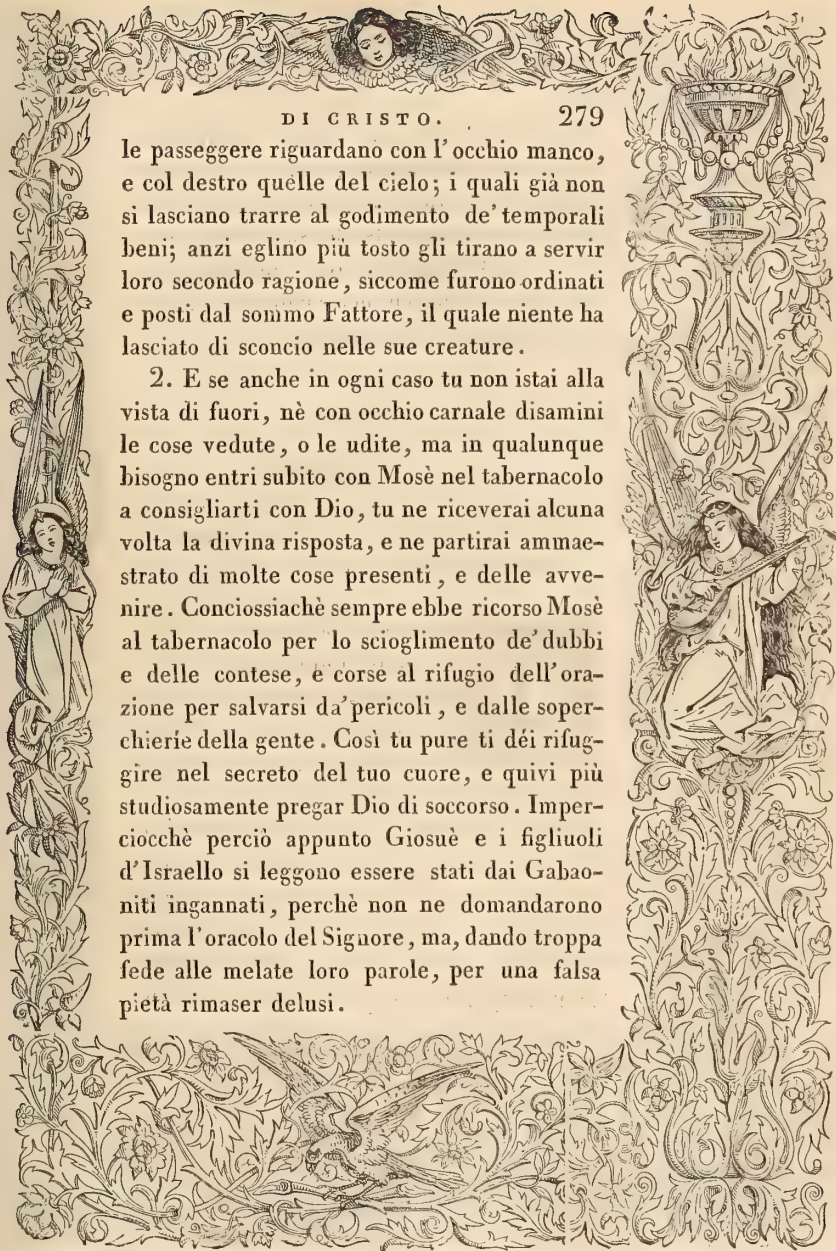 DI CRISTO. 279
le passeggere riguardano con l'occhio manco,
e col destro quelle del cielo; i quali già non
si lasciano trarre al godimento de' temporali
beni; anzi eglino più tosto gli tirano a servir
loro secondo ragione, siccome furono ordinati
e posti dal sommo Fattore, il quale niente ha
lasciato di sconcio nelle sue creature.
2. E se anche in ogni caso tu non istai alla
vista di fuori, nè con occhio carnale disamini
le cose vedute, o le udite, ma in qualunque
bisogno entri subito con Mosè nel tabernacolo
a consigliarti con Dio, tu ne riceverai alcuna
volta la divina risposta, e ne partirai ammae-
strato di molte cose presenti, e delle avve-
nire. Conciossiachè sempre ebbe ricorso Mosè
al tabernacolo per lo scioglimento de' dubbi
e delle contese, e corse al rifugio dell'ora-
zione per salvarsi da' pericoli, e dalle soper-
chierie della gente. Così tu pure ti déi rifug-
gire nel secreto del tuo cuore, e quivi più
studiosamente pregar Dio di soccorso. Imper-
ciocchè perciò appunto Giosuè e i figliuoli
d'Israello si leggono essere stati dai Gabao-
niti ingannati, perchè non ne domandarono
prima l'oracolo del Signore, ma, dando troppa
fede alle melate loro parole, per una falsa
pietà rimaser delusi.